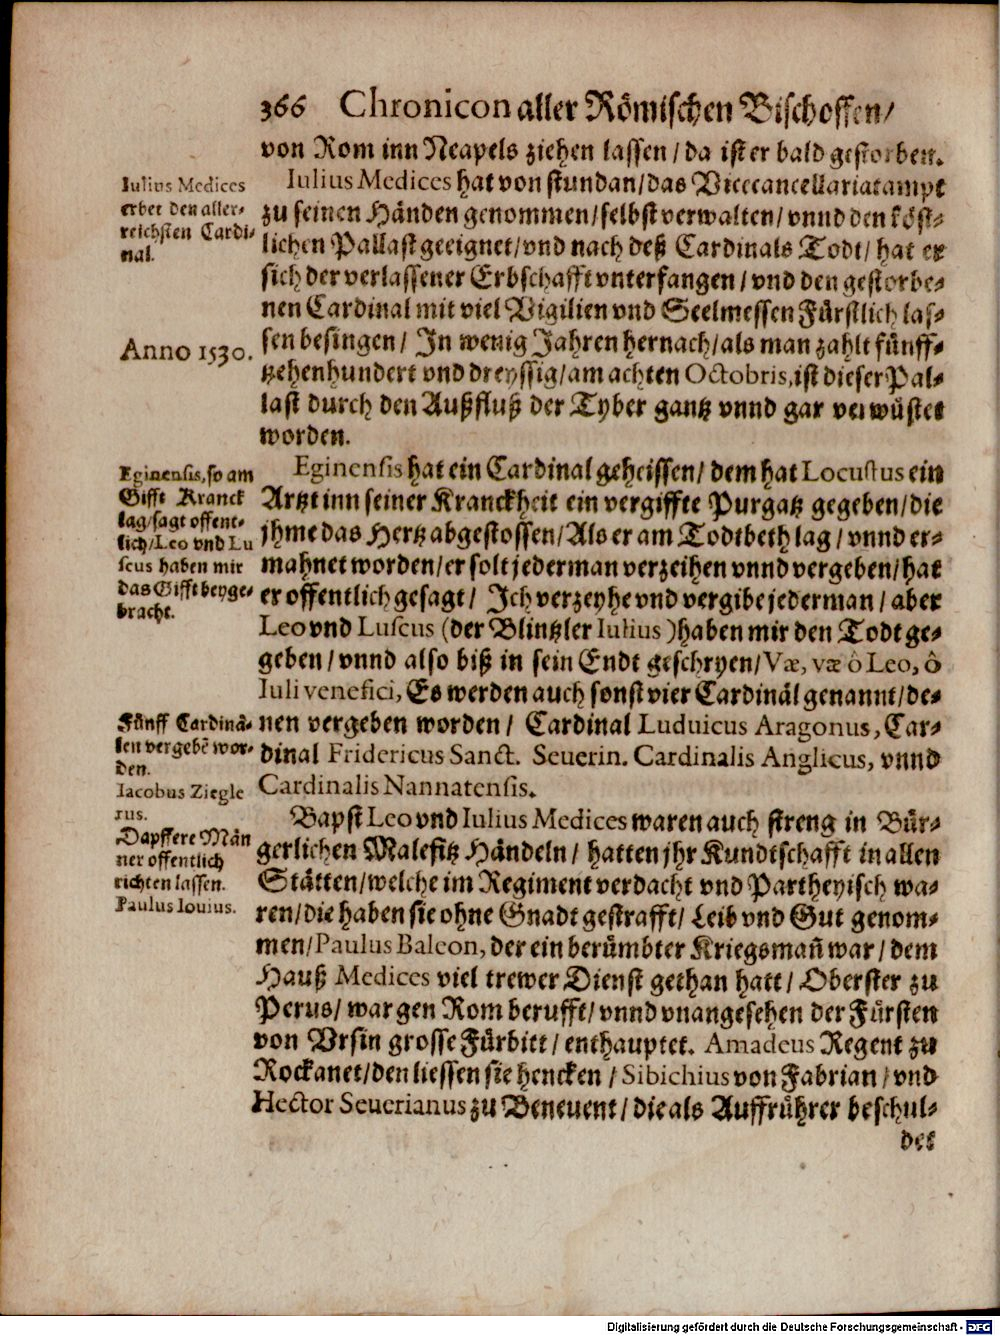 366 Chronicon aller Römischen Bischoffen/
von Rom inn Neapels ziehen lassen / da ist er bald gestorben.
Iulius Medices hat von stundan/das Vicecancellariatampt
zu seinen Händen genommen/selbst verwalten/ vnnd den köst-
lichen Pallast geeignet/vnd nach deß Cardinals Todt/ hat er
sich der verlassener Erbschafft vnterfangen / vnd den gestorbe-
nen Cardinal mit viel Vigilien vnd Seelmessen Fürstlich las-
sen besingen / In wenig Jahren hernach/als man zahlt fünff-
tzehenhundert vnd dreyssig/am achten Octobris, ist dieser Pal-
last durch den Außfluß der Tyber gantz vnnd gar verwüstet
worden.
Iulius Medices
erbet den aller-
reichsten Cardi-
nal.
Anno 1530.
Eginensis hat ein Cardinal geheissen/ dem hat Locustus ein
Artzt inn seiner Kranckheit ein vergiffte Purgatz gegeben/die
jhme das Hertz abgestossen/Als er am Todtbeth lag / vnnd er-
mahnet worden/er solt jederman verzeihen vnnd vergeben/hat
er offentlich gesagt / Ich verzeyhe vnd vergibe jederman / aber
Leo vnd Luscus (der Blintzler Iulius ) haben mir den Todt ge-
geben / vnnd also biß in sein Endt geschryen/Væ, væ ô Leo, ô
Iuli venefici, Es werden auch sonst vier Cardinäl genannt/de-
nen vergeben worden / Cardinal Luduicus Aragonus, Car-
dinal Fridericus Sanct. Seuerin. Cardinalis Anglicus, vnnd
Cardinalis Nannatensis.
Eginensis, so am
Gifft Kranck
lag/sagt offent-
lich/Leo vnd Lu
scus haben mir
das Gifft beyge-
bracht.
Fünff Cardinä-
len vergebẽ wor-
den.
Iacobus Ziegle
rus.
Bapst Leo vnd Iulius Medices waren auch streng in Bür-
gerlichen Malefitz Händeln / hatten jhr Kundtschafft in allen
Stätten/welche im Regiment verdacht vnd Partheyisch wa-
ren/die haben sie ohne Gnadt gestrafft/ Leib vnd Gut genom-
men/Paulus Baleon, der ein berümbter Kriegsmañ war / dem
Hauß Medices viel trewer Dienst gethan hatt / Oberster zu
Perus/ war gen Rom berufft/ vnnd vnangesehen der Fürsten
von Vrsin grosse Fürbitt / enthauptet. Amadeus Regent zu
Rockanet/den liessen sie hencken / Sibichius von Fabrian / vnd
Hector Seuerianus zu Beneuent / die als Auffrührer beschul-
Dapffere Män
ner offentlich
richten lassen.
Paulus Iouius.
det
Digitalisierung gefördert durch die Deutsche Forschungsgemeinschaft - DFG